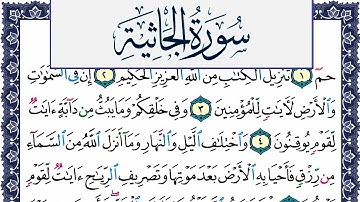 سُورَةُ الجَاثِيَةِ
حمٓ ١ تَنزِيلُ ٱلْكِتَٰبِ مِنَ ٱللَّهِ ٱلْعَزِيزِ ٱلْحَكِيمِ ٢ إِنَّ فِى ٱلسَّمَٰوَٰتِ
وَٱلْأَرْضِ لَءَايَٰتٍ لِّلْمُؤْمِنِينَ ٣ وَفِى خَلْقِكُمْ وَمَا يَبُثُّ مِن دَآبَّةٍ ءَايَٰتٌ
لِّقَوْمٍ يُوقِنُونَ ٤ وَٱخْتِلَٰفِ ٱلَّيْلِ وَٱلنَّهَارِ وَمَآ أَنزَلَ ٱللَّهُ مِنَ ٱلسَّمَآءِ
مِن رِّزْقٍ فَأَحْيَا بِهِ ٱلْأَرْضَ بَعْدَ مَوْتِهَا وَتَصْرِيفِ ٱلرِّيَٰحِ ءَايَٰتٌ لِّقَوْمٍ